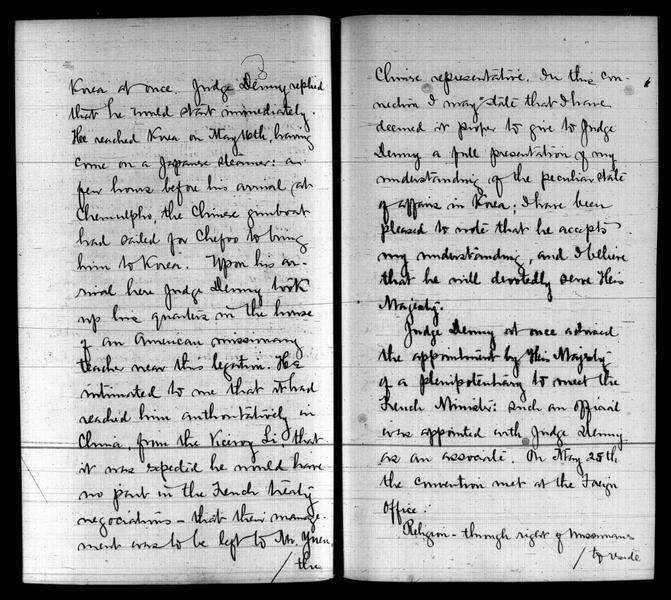 Korea at once. Judge Denny replied
that he would start immediately.
He reached Korea on May 16th, having
come on a Japanese steamer: a
few hours before his arrival, at
Chemulpho, the Chinese gunboat
had sailed for Chefoo to bring
him to Korea. Upon his ar-
rival here Judge Denny took
up his quarters in the house
of an American missionary
teacher near this legation. He
intimated to me that it had
reached him authoritatively in
China, from the Viceroy Li, that
it was expected he would have
no part in the French treaty
negociations - that their manage-
ment was to be left to Mr. Yuen
/ the
Chinese representative. In this con-
nection I may state that I have
deemed it proper to give to Judge
Denny a full presentation of my
understanding of the peculiar state
of affairs in Korea; I have been
pleased to note that he accepts
my understanding, and I believe
that he will devotedly serve His
Majesty.
Judge Denny at once advised
the appointment by His Majesty
of a plenipotentiary to meet the
French Minister: such an official
was appointed with Judge Denny
as an associate. On May 25th
the convention met at the Foreign
Office.
Religion - through right of missionaries
/ to reside